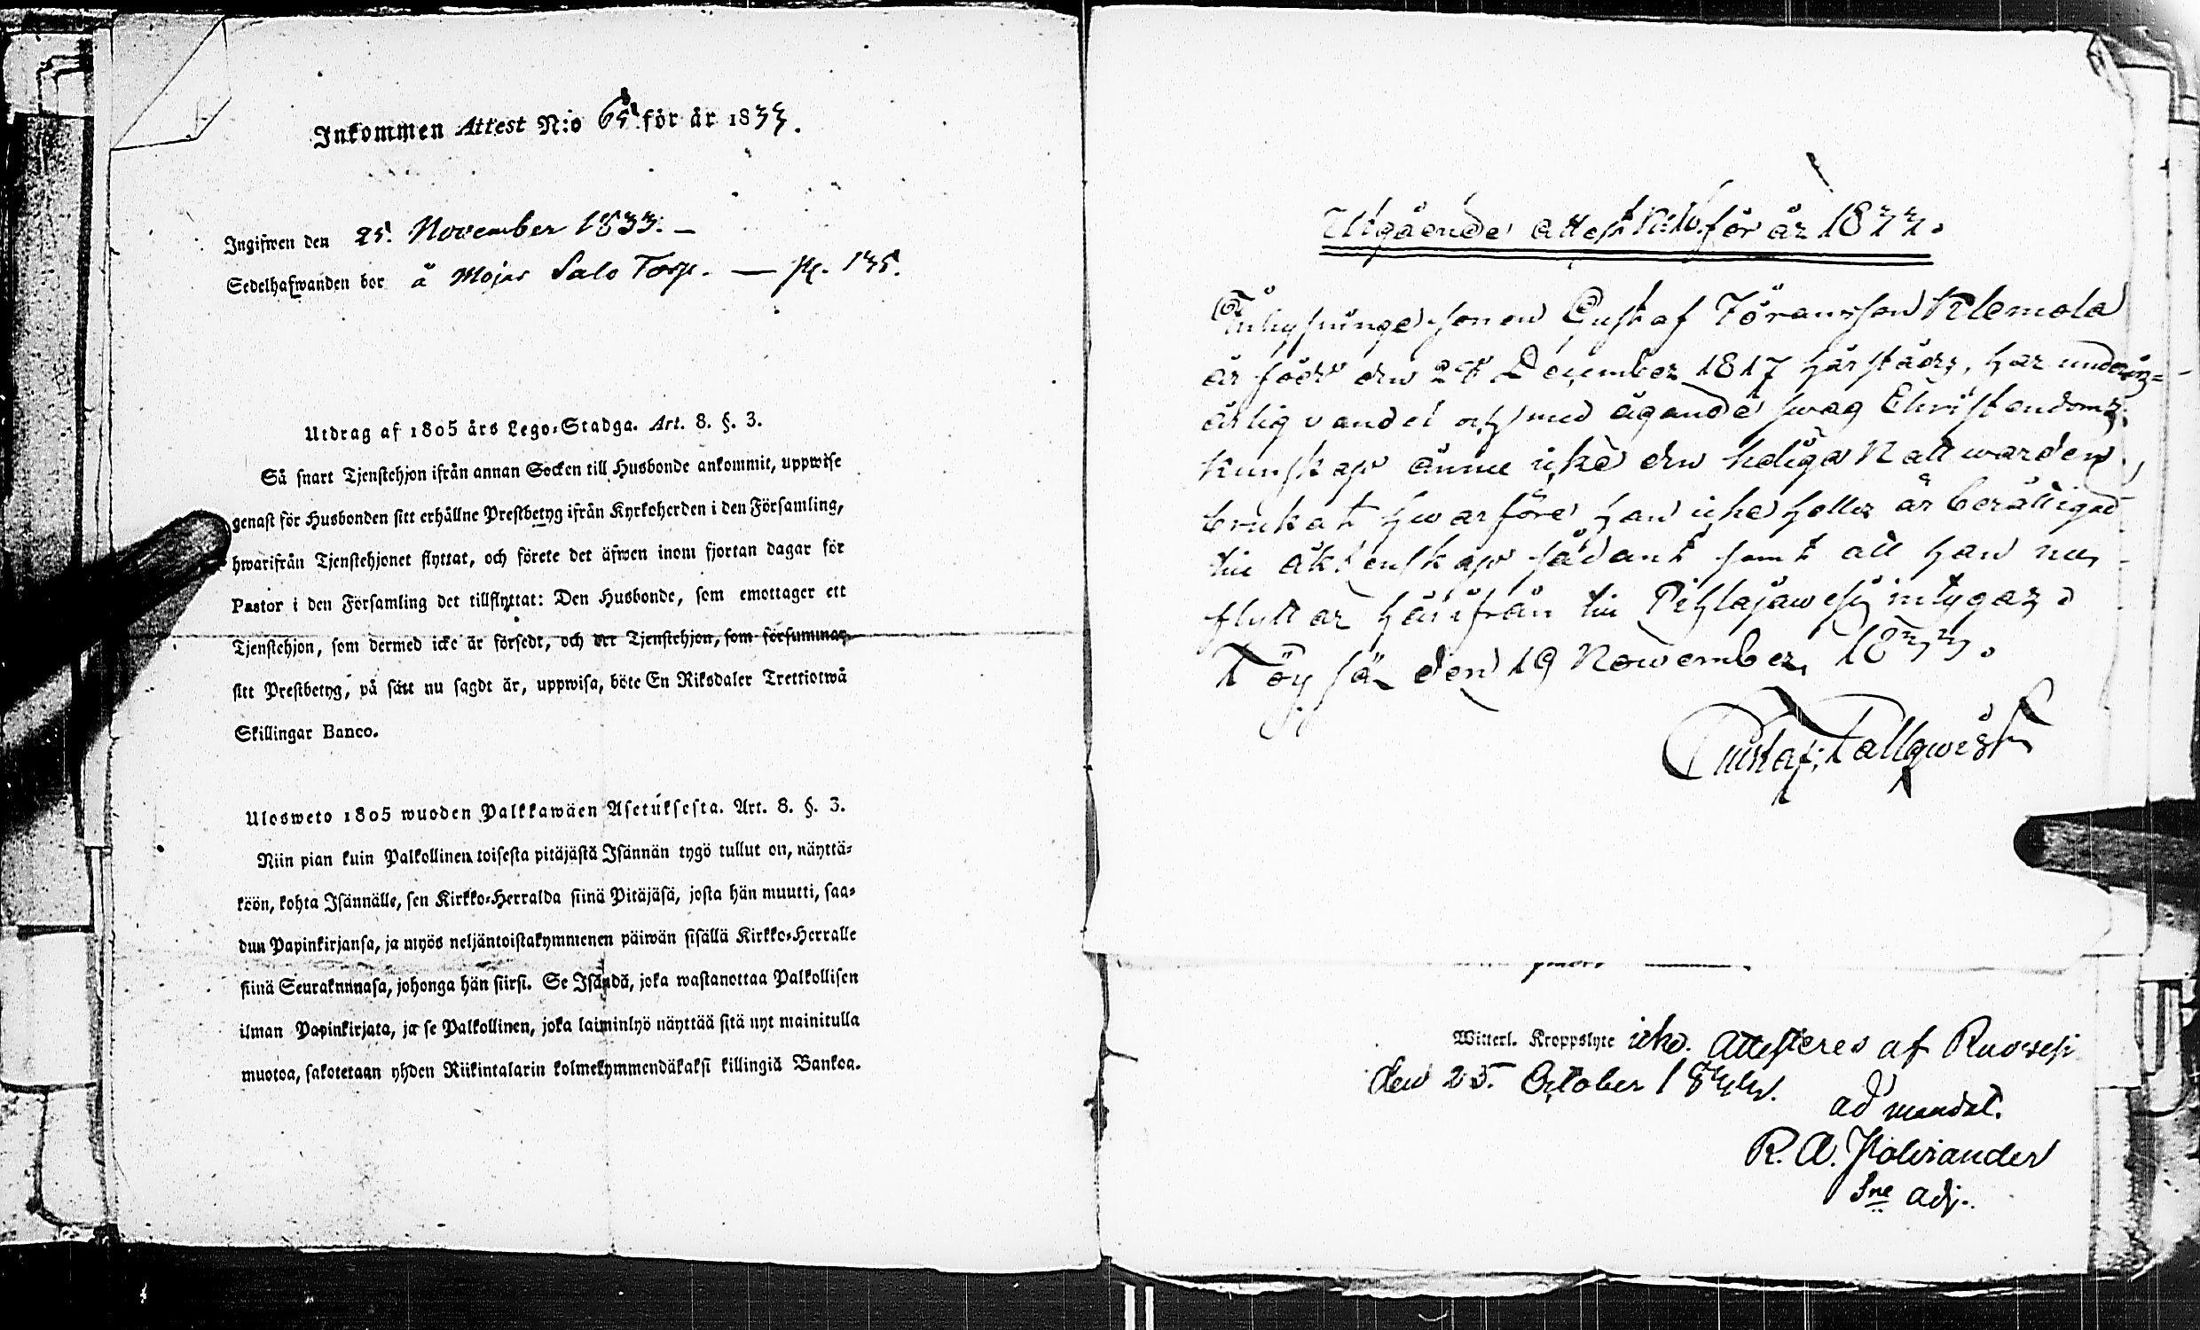 Inkommen Attest N:o 65 för år 1833.
Ingifwen den 25. November 1833. —
Sedelhafwanden bor å Mojar Salo Torp. — p. 135.
Utdrag af 1805 års Lego-Stadga. Art. 8. §. 3.
Så snart Tjenstehjon ifrån annan Socken till Husbonde ankommit, uppwise
genast för Husbonden sitt erhållne Prestbetyg ifrån Kyrkoherden i den Församling,
hwarifrån Tjenstehjonet flyttat, och förete det äfwen inom fjortan dagar för
Pastor i den Församling det tillflyttat: Den Husbonde, som emottager ett
Tjenstehjon, som dermed icke är försedt, och ett Tjenstehjon, som försummar
sitt Prestbetyg, på sätt nu sagdt är, uppwisa, böte En Riksdaler Trettiotwå
Skillingar Banco.
Ulosweto 1805 wuoden Palkkawäen Asetuksesta. Art. 8. §. 3.
Niin pian kuin Palkollinen toisesta pitäjästä Isännän tygö tullut on, näyttä-
köön, kohta Isännälle, sen Kirkko-Herralda siinä Pitäjäsä, josta hän muutti, saa-
dun Papinkirjansa, ja myös neljäntoistakymmenen päiwän sisällä Kirkko-Herralle
siinä Seurakunnasa, johonga hän siirsi. Se Isändä, joka wastanottaa Palkollisen
ilman Papinkirjata, ja se Palkollinen, joka laiminlyö näyttää sitä nyt mainitulla
muotoa, sakotetaan yhden Riikintalarin kolmekymmendäkaksi killingiä Bankoa.
Utgående attest N:o för år 1833.
Gustaf Jöransson Klemola
är född den December 1817 härstädes, har under
ärlig vandel och med ägande swag Christendoms
kunskap ännu icke den heliga Nattwarden
brukat hwarföre han icke heller är berättigad
till äktenskap sådant samt att han nu
flyttar härifrån till Pihlajawesi intygas
Töysä den 19 November 1833.
Gustaf Tallqwist
Witterl. Kroppslyte icke. Attesteres af Ruowesi
den 25. October 18
ad mandat.
R. A. Polviander
Sne adj.